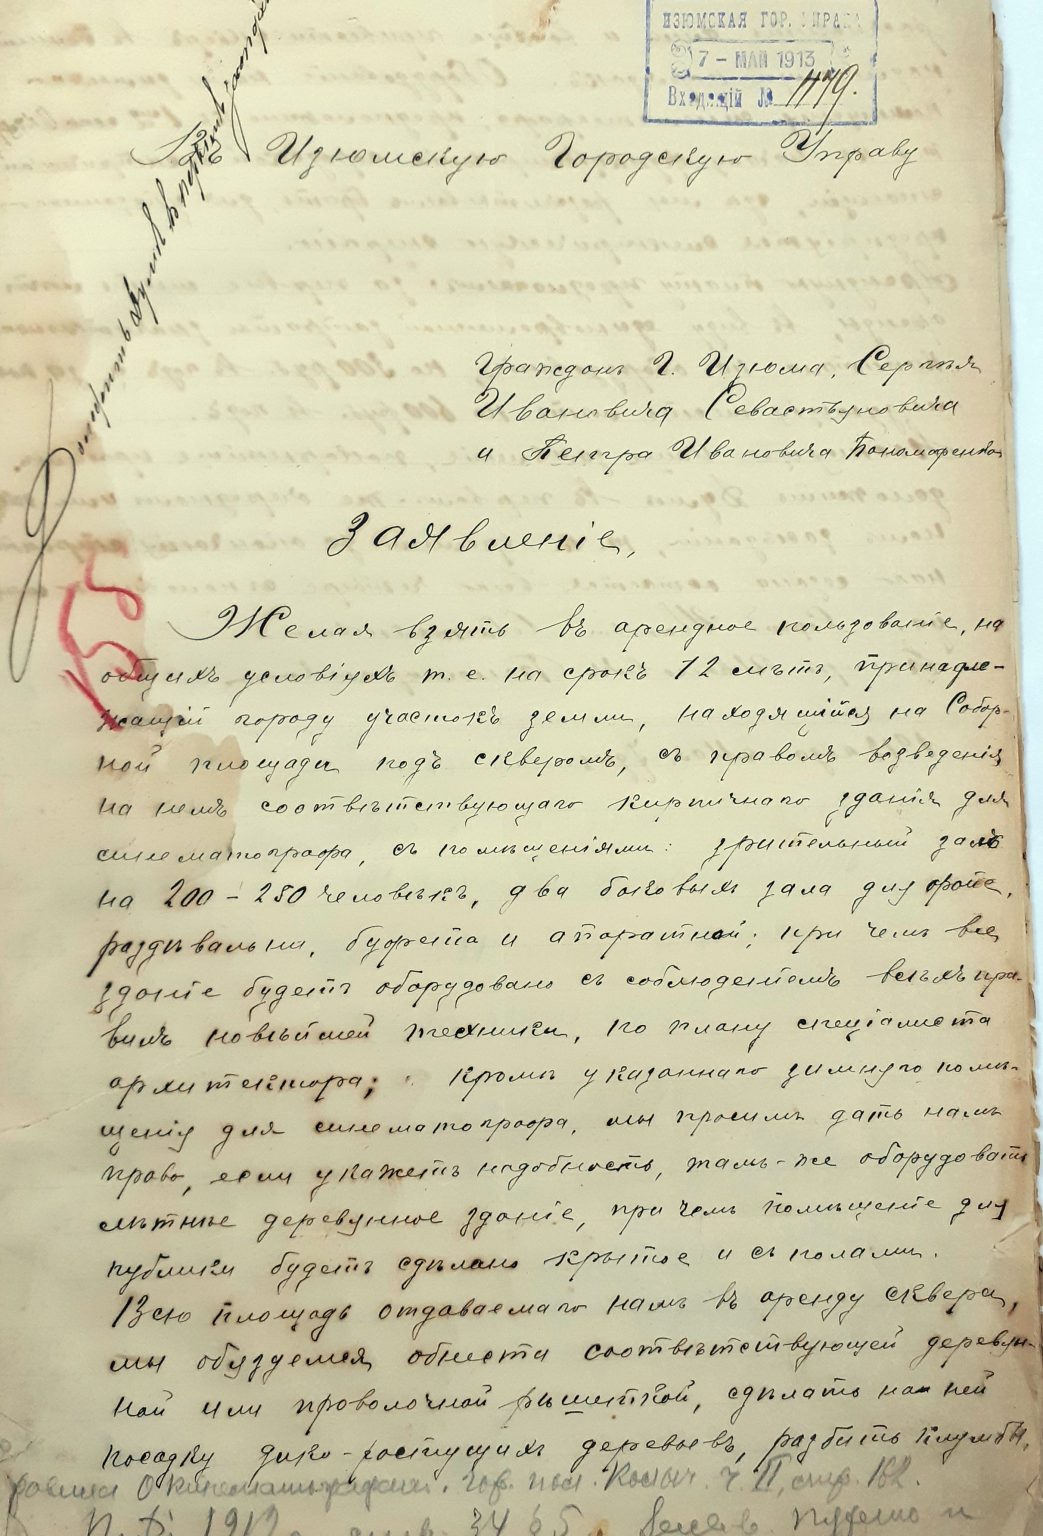 ИЗЮМСКАЯ ГОР. УПРАВА
7 - МАЙ 1913
Входящій № 1179.
Въ Изюмскую Городскую Управу
Доложить Думѣ
Граждан г. Изюма, Сергѣя
Ивановича Севастьяновича
и Петра Ивановича Пономаренко
Заявленіе,
155
Желая взять въ арендное пользованіе, на
общихъ условіяхъ т. е. на срокъ 12 лѣтъ, принадле-
жащій городу участокъ земли, находящійся на Собор-
ной площади подъ скверомъ, съ правомъ возведенія
на немъ соотвѣтствующаго кирпичнаго зданія для
синематографа, съ помѣщеніями: зрительный залъ
на 200 - 250 человѣкъ, два боковыхъ зала для фойе,
раздѣвальни, буфета и апаратной; при чемъ все
зданіе будетъ оборудовано съ соблюденіемъ всѣхъ пра-
вилъ новѣйшей техники, по плану спеціалиста
архитектора; кромѣ указаннаго зимняго помѣ-
щенія для синематографа, мы просимъ дать намъ
право, если укажетъ надобность, тамъ-же оборудовать
лѣтнѣе деревянное зданіе, при чемъ помѣщеніе для
публики будетъ сдѣлано крытое и съ полами.
Всю площадь отдаваемаго намъ въ аренду сквера,
мы обязуемся обнести соотвѣтствующей деревян-
ной или проволочной рѣшеткой, сдѣлать на ней
посадку дико-ростущихъ деревьевъ, разбить клумбы,
О кинематографах. ч. II, стр. 162.
1912 34 65